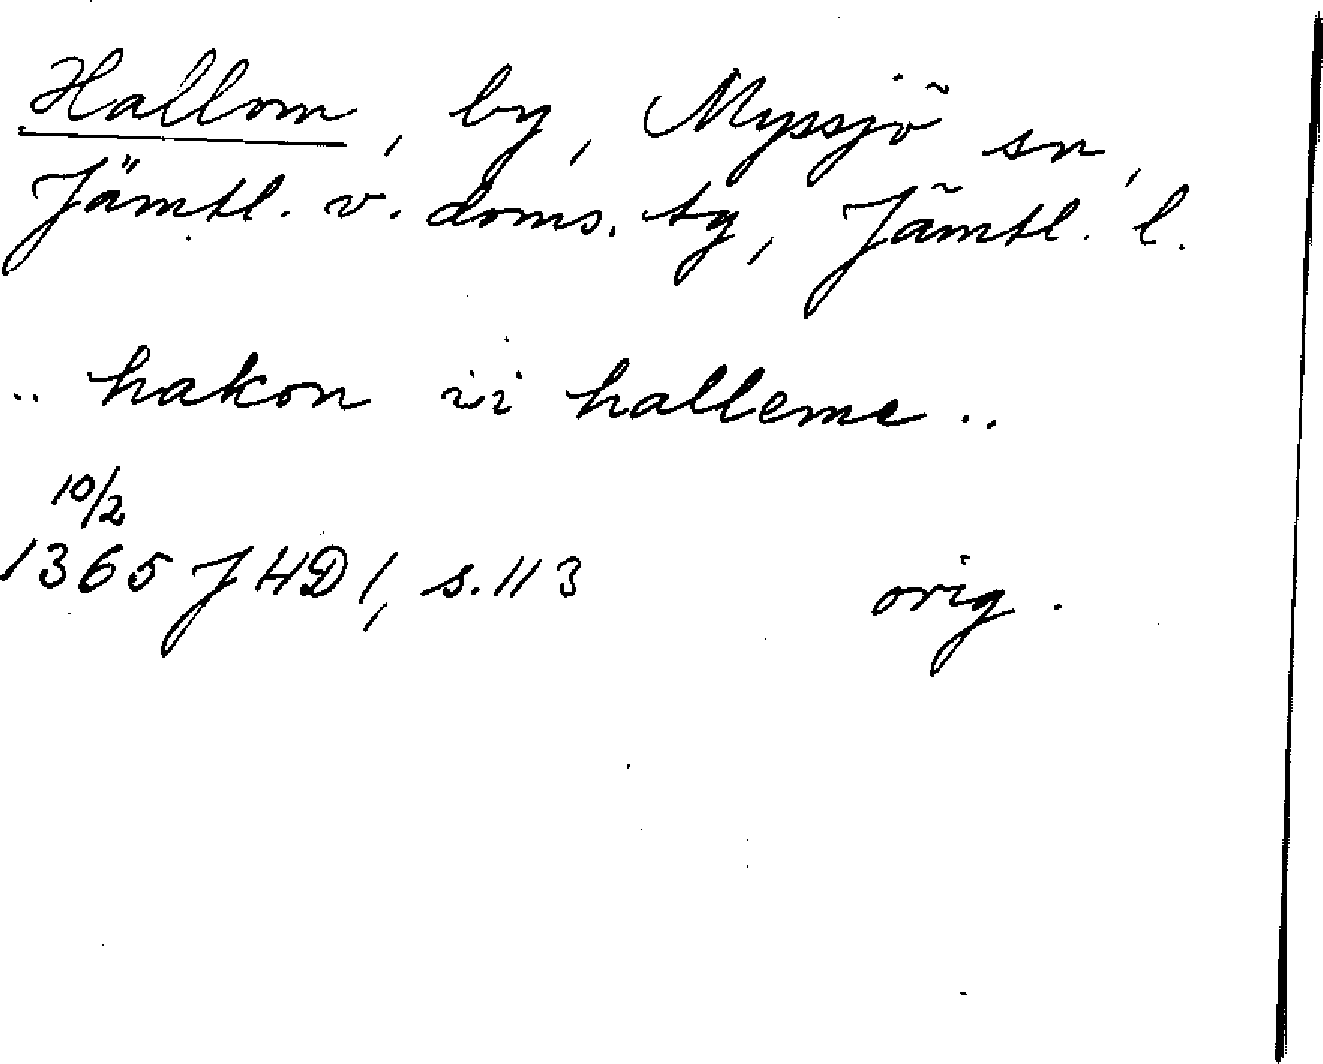 Hallom, by, Myssjö sn,
Jämtl. v. doms. tg, Jämtl. l.
.. hakon ii halleme ..
10/2
1365 JHD 1, s. 113 orig.